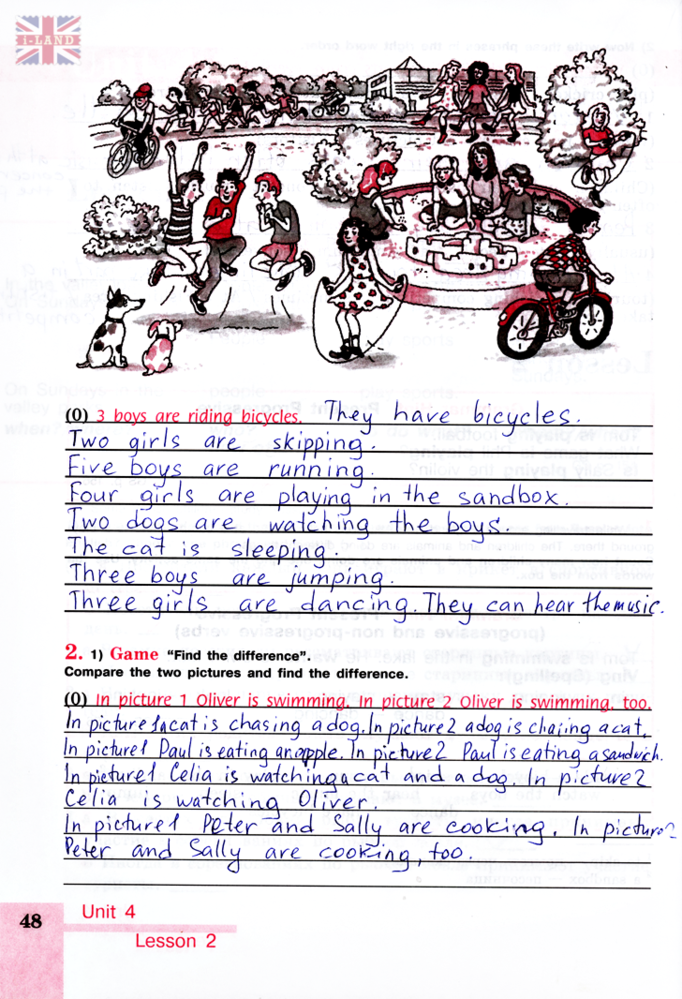 I-LAND
(0) 3 boys are riding bicycles. They have bicycles.
Two girls are skipping.
Five boys are running.
Four girls are playing in the sandbox.
Two dogs are watching the boys.
The cat is sleeping
Three boys are jumping.
Three girls are dancing. They can hear the music.
2. 1) Game "Find the difference".
Compare the two pictures and find the difference.
(0) In picture 1 Oliver is swimming. In picture 2 Oliver is swimming, too.
In picture 1 a cat is chasing a dog. In picture 2 a dog is chasing a cat.
In picture 1 Paul is eating an apple. In picture 2 Paul is eating a sandwich.
In picture 1 Celia is watching a cat and a dog. In picture 2
Celia is watching Oliver.
In picture 1 Peter and Sally are cooking. In picture 2
Peter and Sally are cooking, too.
48
Unit 4
Lesson 2